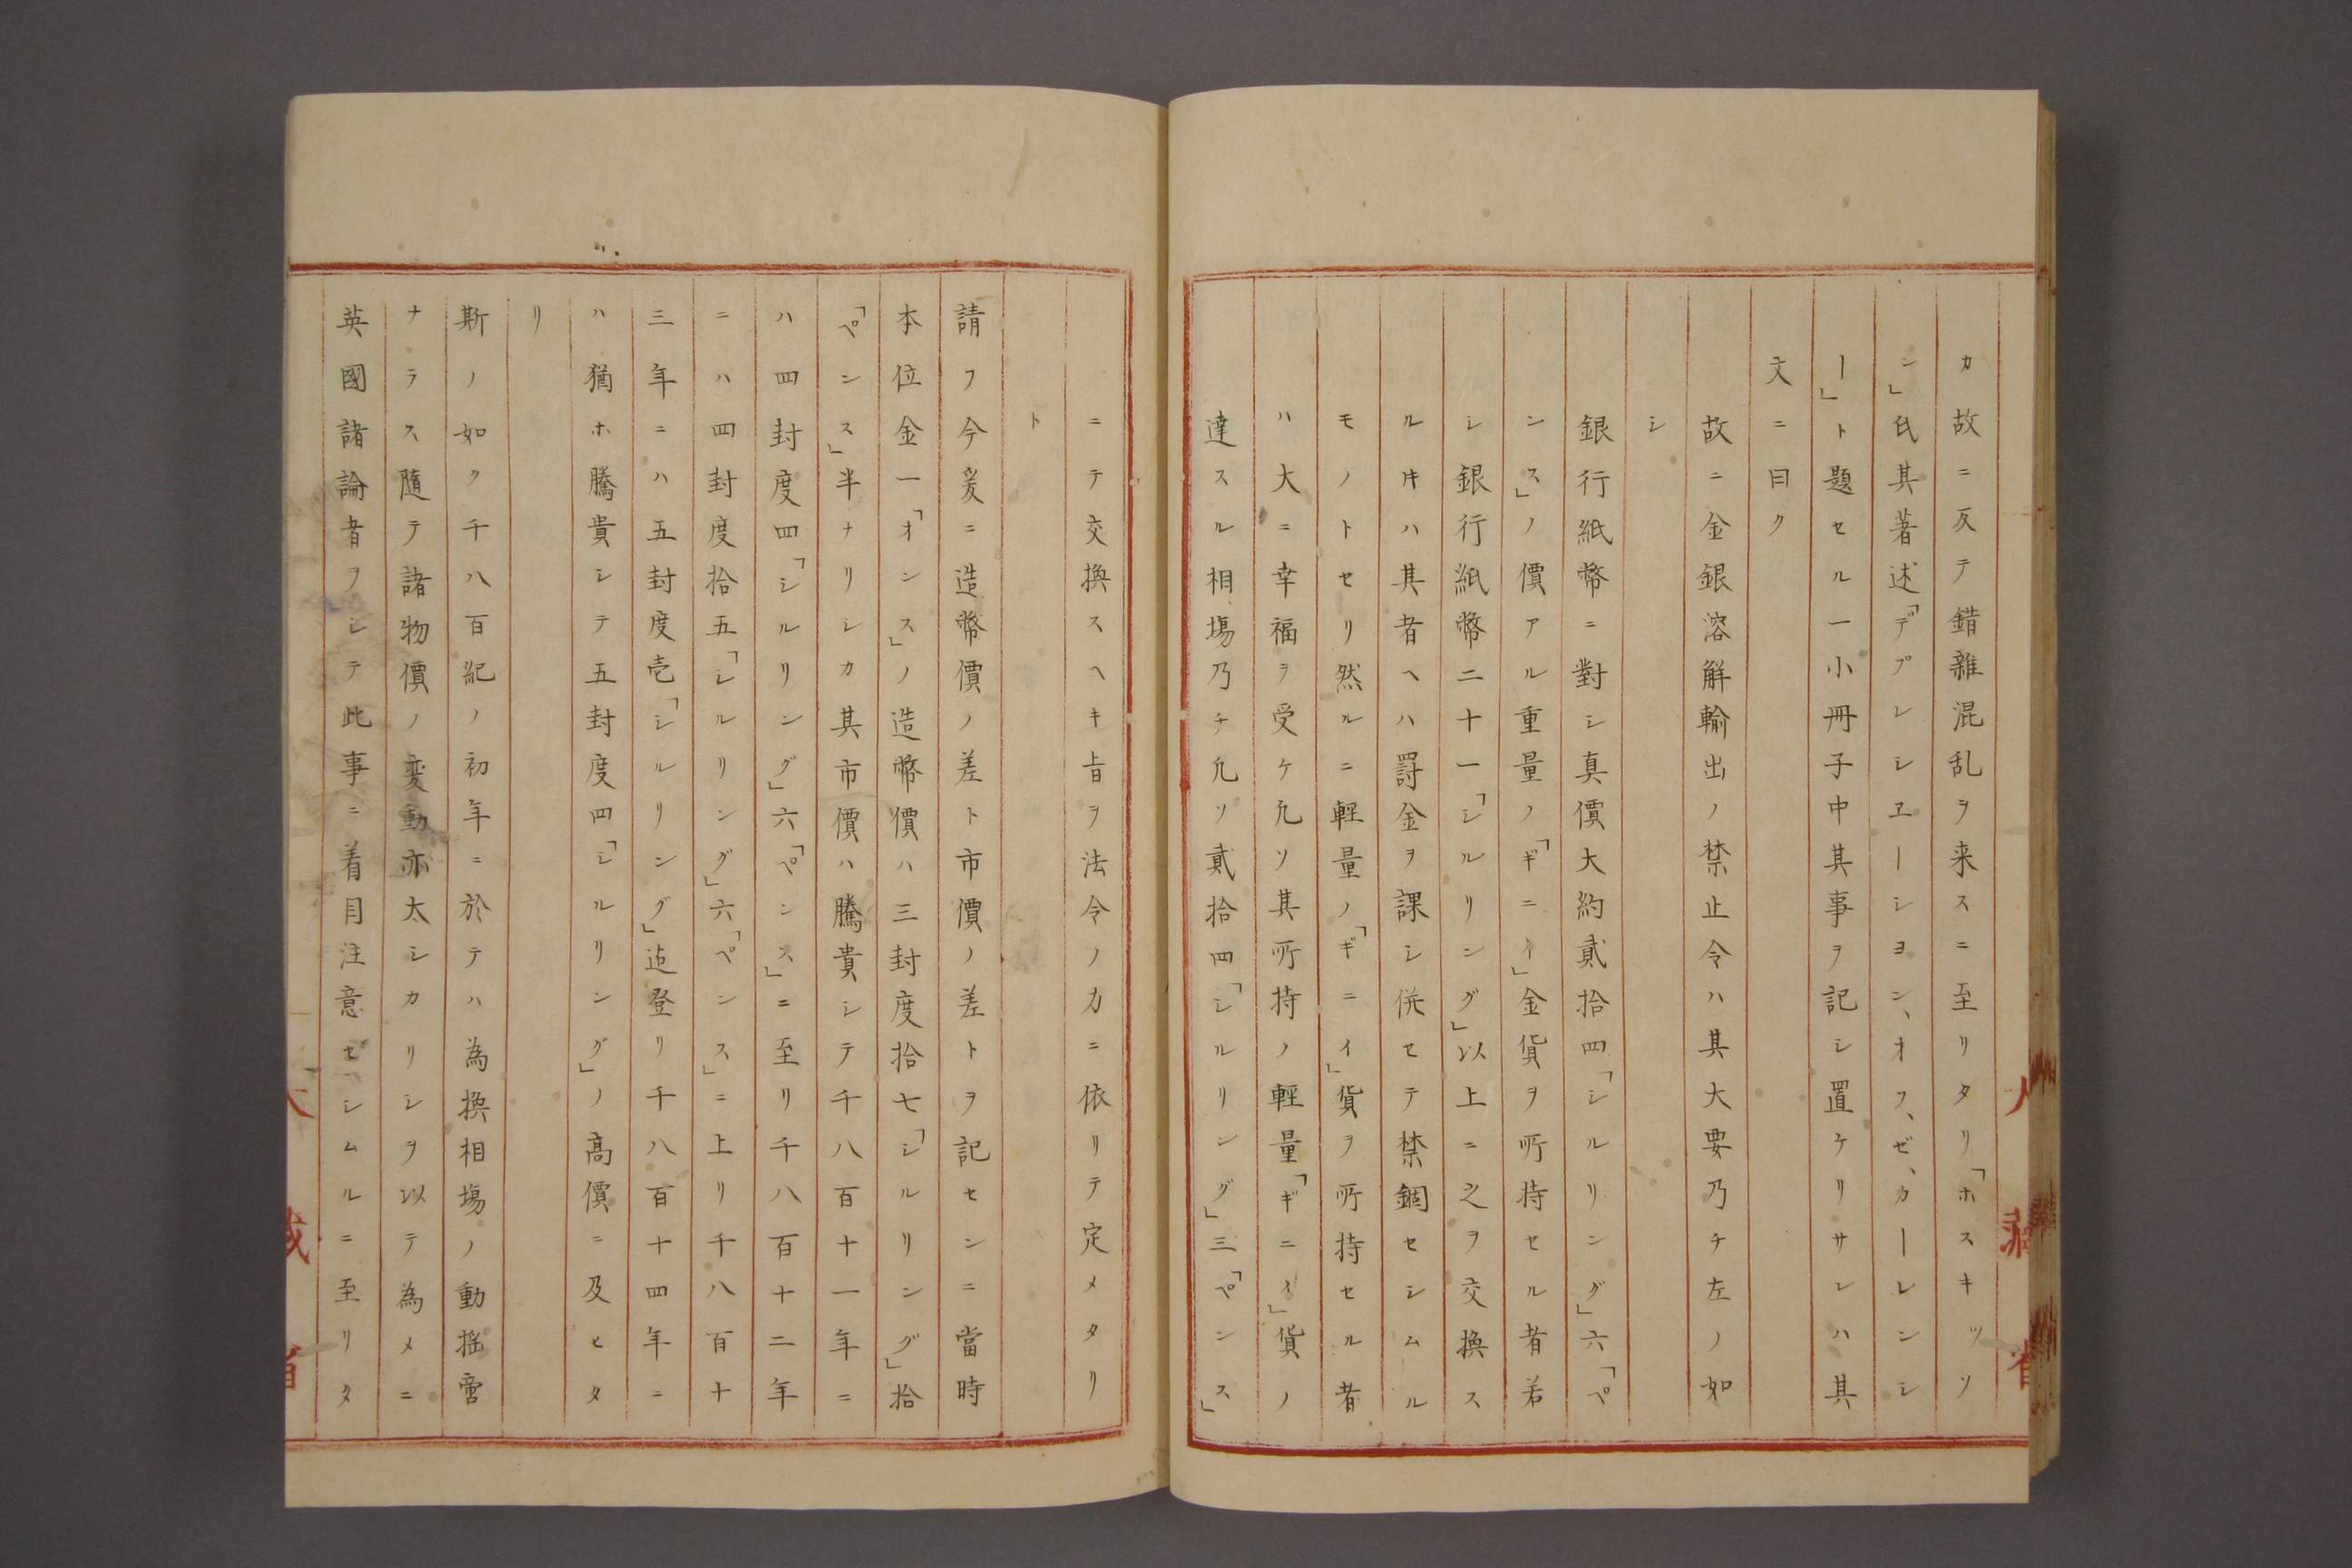 カ故ニ反テ錯雜混乱ヲ来スニ至リタリ「ホスキツソ
ン」氏其著述「デプレシエーシヨン、オフ、ゼ、カーレンシ
ー」ト題セル一小冊子中其事ヲ記シ置ケリサレハ其
文ニ曰ク
故ニ金銀溶解輸出ノ禁止令ハ其大要乃チ左ノ如
シ
銀行紙幣ニ對シ真價大約貳拾四「シルリング」六「ペ
ンス」ノ價アル重量ノ「ギニイ」金貨ヲ所持セル者若
シ銀行紙幣二十一「シルリング」以上ニ之ヲ交換ス
ル片ハ其者ヘハ罸金ヲ課シ併セテ禁錮セシムル
モノトセリ然ルニ軽量ノ「ギニイ」貨ヲ所持セル者
ハ大ニ幸福ヲ受ケ凢ソ其所持ノ輕量「ギニイ」貨ノ
達スル相塲乃チ凢ソ貳拾四「シルリング」三「ペンス」
ニテ交換スヘキ旨ヲ法令ノ力ニ依リテ定メタリ
ト
請フ今爰ニ造幣價ノ差ト市價ノ差トヲ記センニ當時
本位金一「オンス」ノ造幣價ハ三封度拾七「シルリング」拾
「ペンス」半ナリシカ其市價ハ騰貴シテ千八百十一年ニ
ハ四封度四「シルリング」六「ペンス」ニ至リ千八百十二年
ニハ四封度拾五「シルリング」六「ペンス」ニ上リ千八百十
三年ニハ五封度壱「シルリング」迠登リ千八百十四年ニ
ハ猶ホ騰貴シテ五封度四「シルリング」ノ高價ニ及ヒタ
リ
斯ノ如ク千八百紀ノ初年ニ於テハ為換相塲ノ動揺啻
ナラス随テ諸物價ノ変動亦太シカリシヲ以テ為メニ
英國諸論者ヲシテ此事ニ着目注意セシムルニ至リタ
大藏省